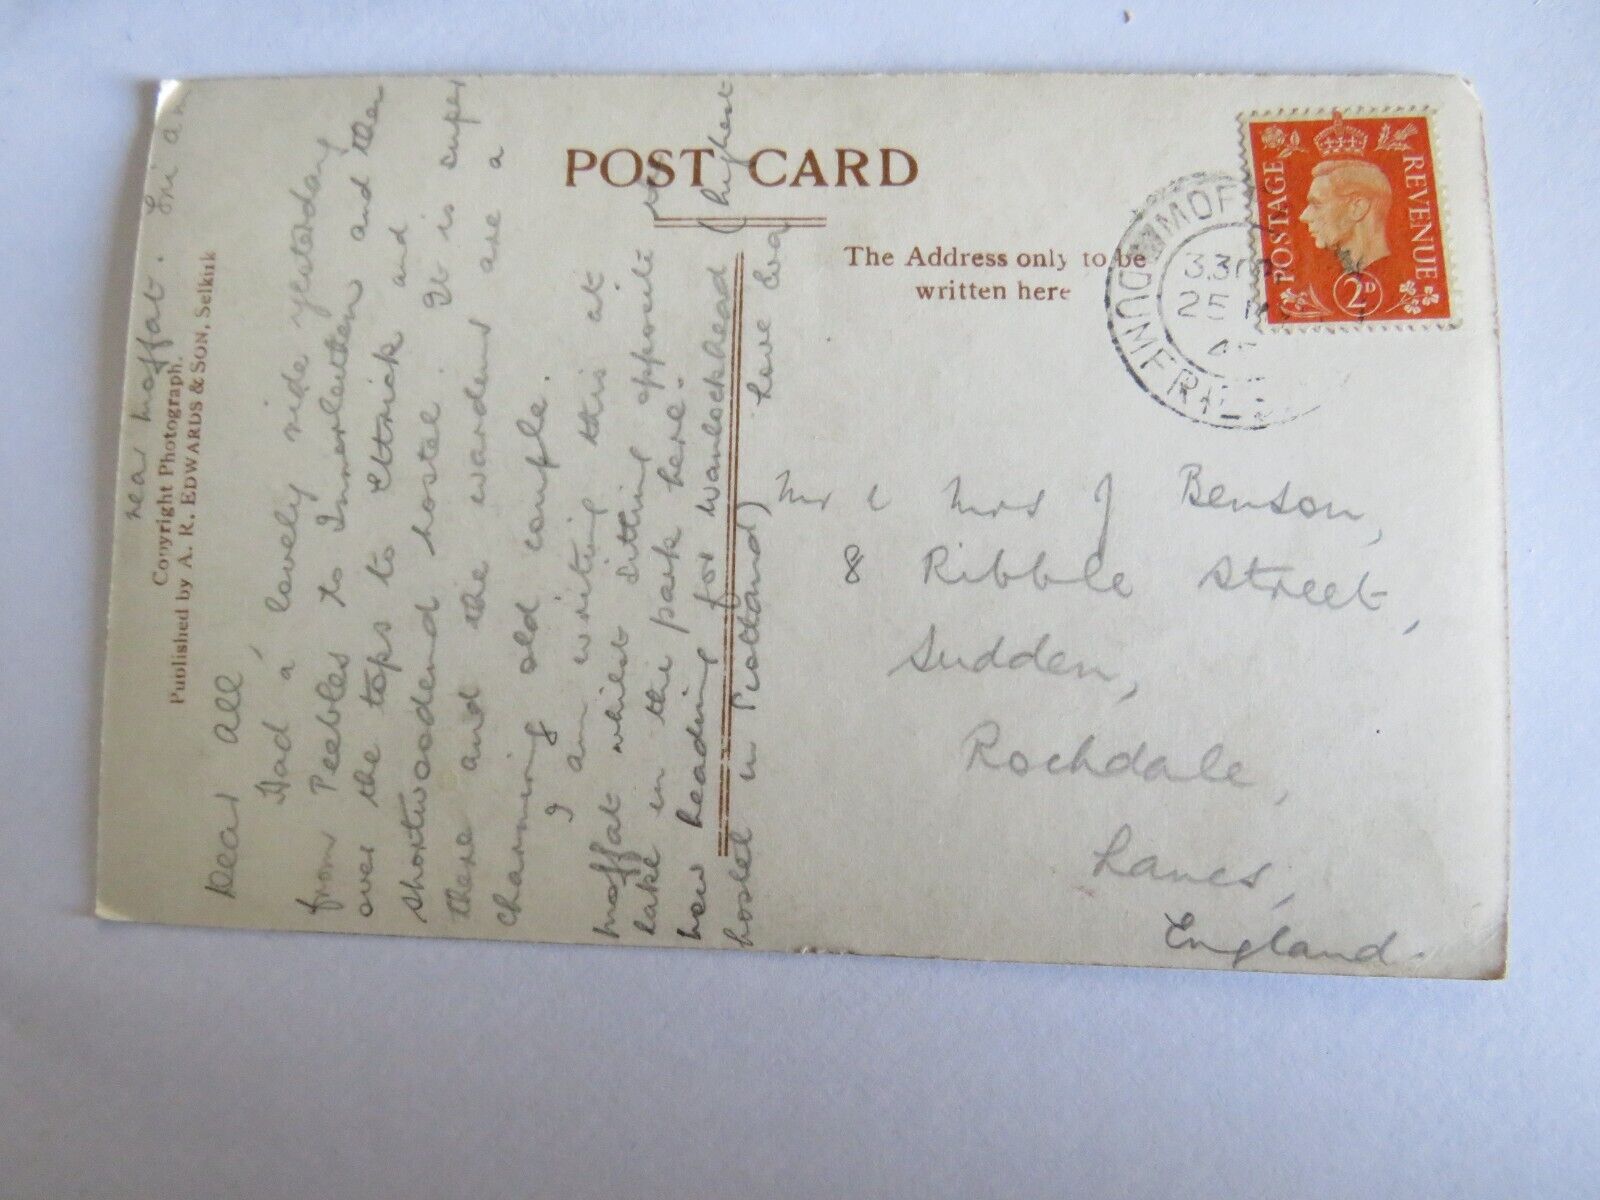 POST CARD
The Address only to be
written here
POSTAGE
REVENUE
2D
DUMFRIES
25
Copyright Photograph.
Published by A. R. EDWARDS & SON, Selkirk
near Moffat. Fri am
Dear All,
Had a lovely ride yesterday
from Peebles to Innerleithen and then
over the tops to Ettrick and
Shortwoodend hostel. It is super
there and the wardens are a
charming old couple.
I am writing this at
Moffat whilst sitting opposite the
lake in the park here.
now heading for Wanlockhead (highest
hostel in Scotland) love
Mr & Mrs J Benson,
8 Ribble Street,
Sudden,
Rochdale,
Lancs,
England.